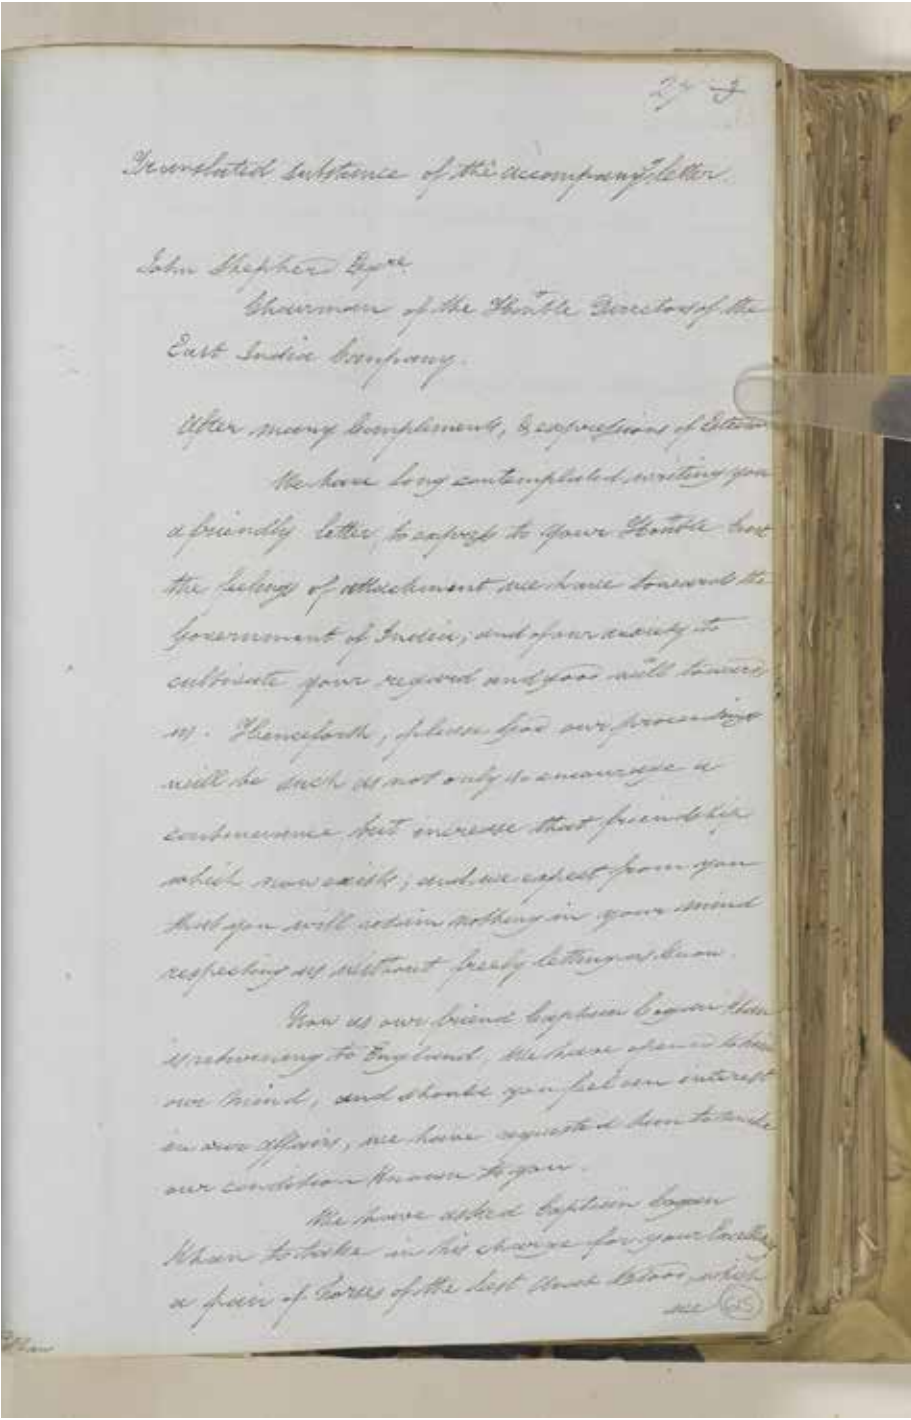 27
Translated substance of the accompany'g letter.
John Shepherd Esqre
Chairman of the Honble Directors of the
East India Company.
After many Compliments, & expressions of Esteem
We have long contemplated writing you
a friendly letter, to express to your Honble
the feelings of attachment we have toward the
Government of India; and of our anxiety to
cultivate your regard and good will towards
us. Henceforth, please God our proceedings
will be such as not only to encourage a
continuance, but increase that friendship
which now exists; and we expect from you
that you will retain nothing in your mind
respecting us without freely letting us know.
Now as our friend Captain Cogan Khan
is returning to England, We have opened to him
our mind, and should you feel an interest
in our affairs, we have requested him to make
our condition known to you.
We have asked Captain Cogan
Khan to take in his charge for your Excellency
a pair of Horses of the best Arab blood, which
we
65